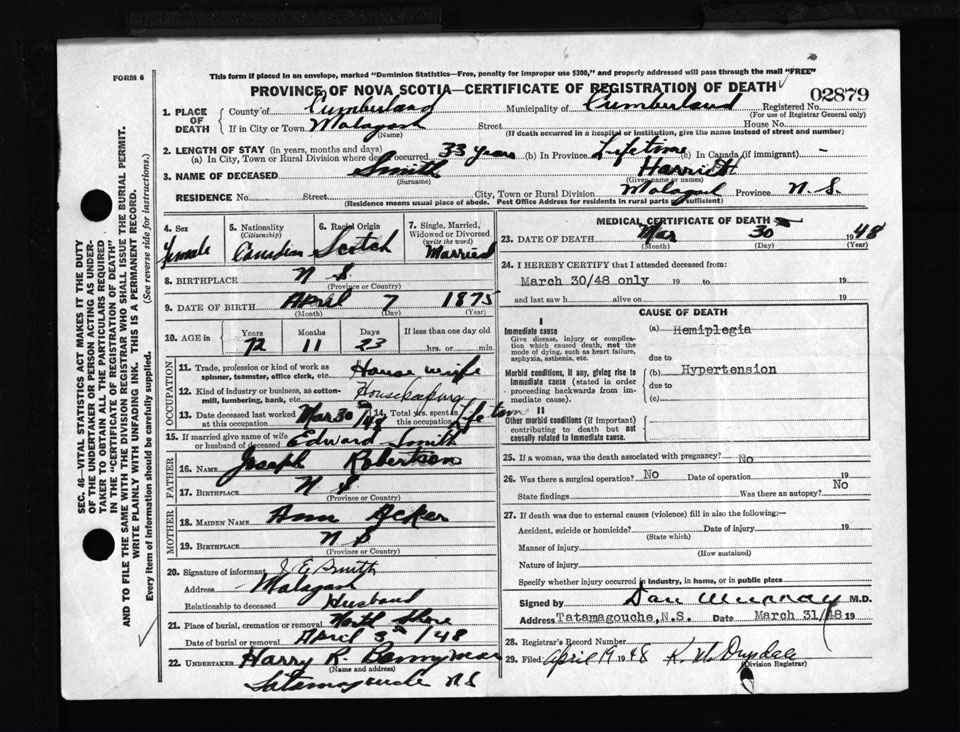 FORM 6
This form if placed in an envelope, marked "Dominion Statistics—Free, penalty for improper use $300," and properly addressed will pass through the mail "FREE"
PROVINCE OF NOVA SCOTIA—CERTIFICATE OF REGISTRATION OF DEATH
02879
1. PLACE OF DEATH
County of Cumberland Municipality of Cumberland Registered No.
(For use of Registrar General only)
If in City or Town Malagash Street House No.
(Name) (If death occurred in a hospital or institution, give the name instead of street and number)
2. LENGTH OF STAY (in years, months and days)
(a) In City, Town or Rural Division where death occurred 33 years (b) In Province Lifetime (c) In Canada (if immigrant) -
3. NAME OF DECEASED Smith Harriet
(Surname) (Given name or names)
RESIDENCE No. Street City, Town or Rural Division Malagash Province N.S.
(Residence means usual place of abode. Post Office Address for residents in rural parts is sufficient)
4. Sex Female
5. Nationality (Citizenship) Canadian
6. Racial Origin Scotch
7. Single, Married, Widowed or Divorced (write the word) Married
8. BIRTHPLACE N S
(Province or Country)
9. DATE OF BIRTH April 7 1875
(Month) (Day) (Year)
10. AGE in Years Months Days If less than one day old
72 11 23 hrs. or min.
OCCUPATION
11. Trade, profession or kind of work as spinner, teamster, office clerk, etc. House wife
12. Kind of industry or business, as cotton-mill, lumbering, bank, etc. Housekeeping
13. Date deceased last worked at this occupation Mar 30th/48
14. Total yrs. spent in this occupation Lifetime
15. If married give name of wife or husband of deceased Edward Smith
FATHER
16. NAME Joseph Robertson
17. BIRTHPLACE N S
(Province or Country)
MOTHER
18. MAIDEN NAME Ann Acker
19. BIRTHPLACE N S
(Province or Country)
20. Signature of informant J E Smith
Address Malagash
Relationship to deceased Husband
21. Place of burial, cremation or removal North Shore
Date of burial or removal April 3rd/48
22. UNDERTAKER Harry R.
(Name and address)
Tatamagouche N S
MEDICAL CERTIFICATE OF DEATH
23. DATE OF DEATH Mar 30th 1948
(Month) (Day) (Year)
24. I HEREBY CERTIFY that I attended deceased from:
March 30/48 only 19 to 19
and last saw h alive on 19
CAUSE OF DEATH
I
Immediate cause
Give disease, injury or complication which caused death, not the mode of dying, such as heart failure, asphyxia, asthenia, etc.
(a) Hemiplegia
due to
Morbid conditions, if any, giving rise to immediate cause (stated in order of proceeding backwards from immediate cause).
(b) Hypertension
due to
(c)
II
Other morbid conditions (if important) contributing to death but not causally related to immediate cause.
25. If a woman, was the death associated with pregnancy? No
26. Was there a surgical operation? No Date of operation 19
State findings Was there an autopsy? No
27. If death was due to external causes (violence) fill in also the following:—
Accident, suicide or homicide? Date of injury 19
(State which)
Manner of injury
(How sustained)
Nature of injury
Specify whether injury occurred in industry, in home, or in public place
Signed by Dan Murray M.D.
Address Tatamagouche, N.S. Date March 31/48 19
28. Registrar's Record Number
29. Filed April 19 1948
(Division Registrar)
SEC. 46—VITAL STATISTICS ACT MAKES IT THE DUTY
OF THE UNDERTAKER OR PERSON ACTING AS UNDER-
TAKER TO OBTAIN ALL THE PARTICULARS REQUIRED
IN THE "CERTIFICATE OF REGISTRATION OF DEATH"
AND TO FILE THE SAME WITH THE DIVISION REGISTRAR WHO SHALL ISSUE THE BURIAL PERMIT.
WRITE PLAINLY WITH UNFADING INK. THIS IS A PERMANENT RECORD.
Every item of information should be carefully supplied. (See reverse side for instructions.)